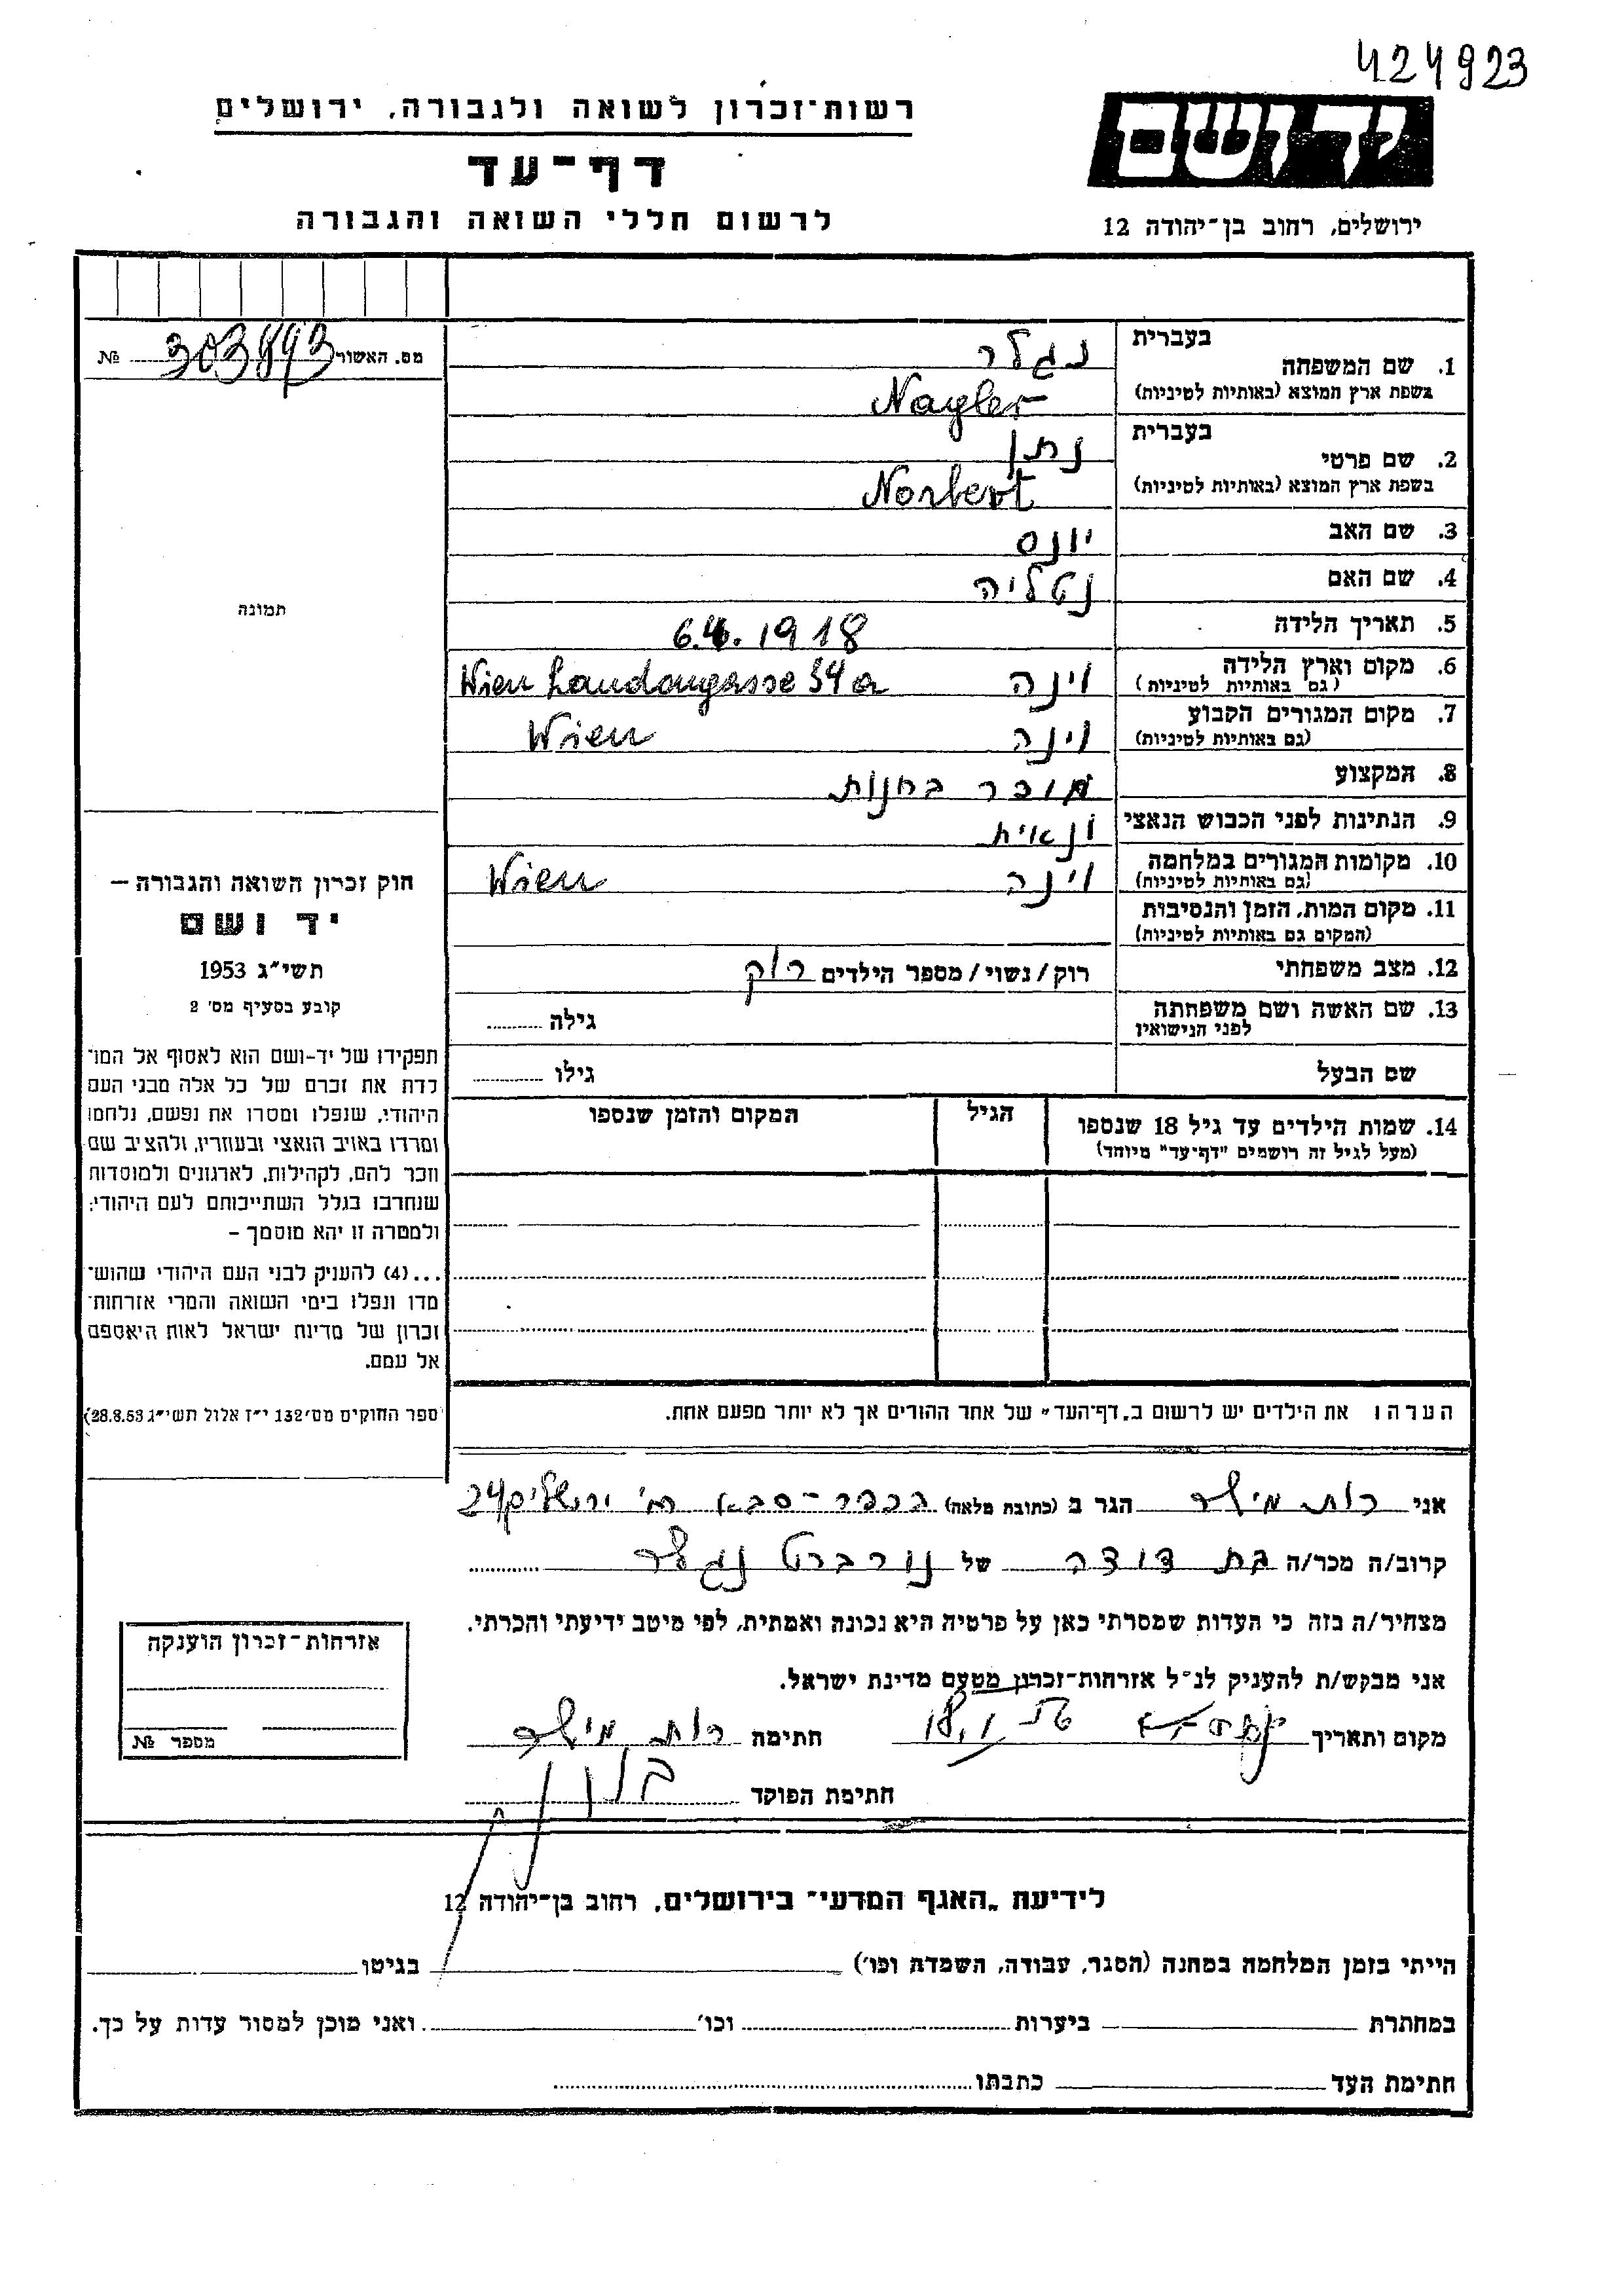 424923
רשות־זכרון לשואה ולגבורה, ירושלים
יד ושם
דף־עד
לרשום חללי השואה והגבורה
ירושלים, רחוב בן־יהודה 12
מס. האשור 303893 №
תמונה
1. שם המשפחה בעברית נגלר
בשפת ארץ המוצא (באותיות לטיניות) Nagler
2. שם פרטי בעברית נתן
בשפת ארץ המוצא (באותיות לטיניות) Norbert
3. שם האב יונס
4. שם האם נטליה
5. תאריך הלידה 6.4.1918
6. מקום וארץ הלידה (גם באותיות לטיניות) וינה Wien Laudongasse 34a
7. מקום המגורים הקבוע (גם באותיות לטיניות) וינה Wien
8. המקצוע מוכר בחנות
9. הנתינות לפני הכבוש הנאצי
10. מקומות המגורים במלחמה (גם באותיות לטיניות) וינה Wien
11. מקום המות, הזמן והנסיבות
(המקום גם באותיות לטיניות)
12. מצב משפחתי רוק/נשוי/מספר הילדים רוק
13. שם האשה ושם משפחתה לפני הנישואין גילה
שם הבעל גילו
14. שמות הילדים עד גיל 18 שנספו הגיל המקום והזמן שנספו
(מעל לגיל זה רושמים "דף־עד" מיוחד)
חוק זכרון השואה והגבורה –
יד ושם
תשי"ג 1953
קובע בסעיף מס' 2
תפקידו של יד-ושם הוא לאסוף אל המו־
לדת את זכרם של כל אלה מבני העם
היהודי, שנפלו ומסרו את נפשם, נלחמו
ומרדו באויב הנאצי ובעוזריו, ולהציב שם
וזכר להם, לקהילות, לארגונים ולמוסדות
שנחרבו בגלל השתייכותם לעם היהודי;
ולמטרה זו יהא מוסמך –
...(4) להעניק לבני העם היהודי שהוש־
מדו ונפלו בימי השואה והמרי אזרחות־
זכרון של מדינת ישראל לאות היאספם
אל עמם.
(ספר החוקים מס' 132 י"ז אלול תשי"ג 28.8.53)
הערה: את הילדים יש לרשום ב"דף־העד" של אחד ההורים אך לא יותר מפעם אחת.
אני רות מילר הגר ב (כתובת מלאה) בכפר-סבא רח' ירושלים 24
קרוב/ה מכר/ה בת דודה של נורברט נגלר
מצהיר/ה בזה כי העדות שמסרתי כאן על פרטיה היא נכונה ואמתית, לפי מיטב ידיעתי והכרתי.
אני מבקש/ת להעניק לנ"ל אזרחות־זכרון מטעם מדינת ישראל.
מקום ותאריך חתימה רות מילר
חתימת הפוקד
אזרחות־זכרון הוענקה
מספר №
לידיעת "האגף המדעי" בירושלים, רחוב בן־יהודה 12
הייתי בזמן המלחמה במחנה (הסגר, עבודה, השמדה וכו') בגיטו
במחתרת ביערות וכו' ואני מוכן למסור עדות על כך.
חתימת העד כתבתו